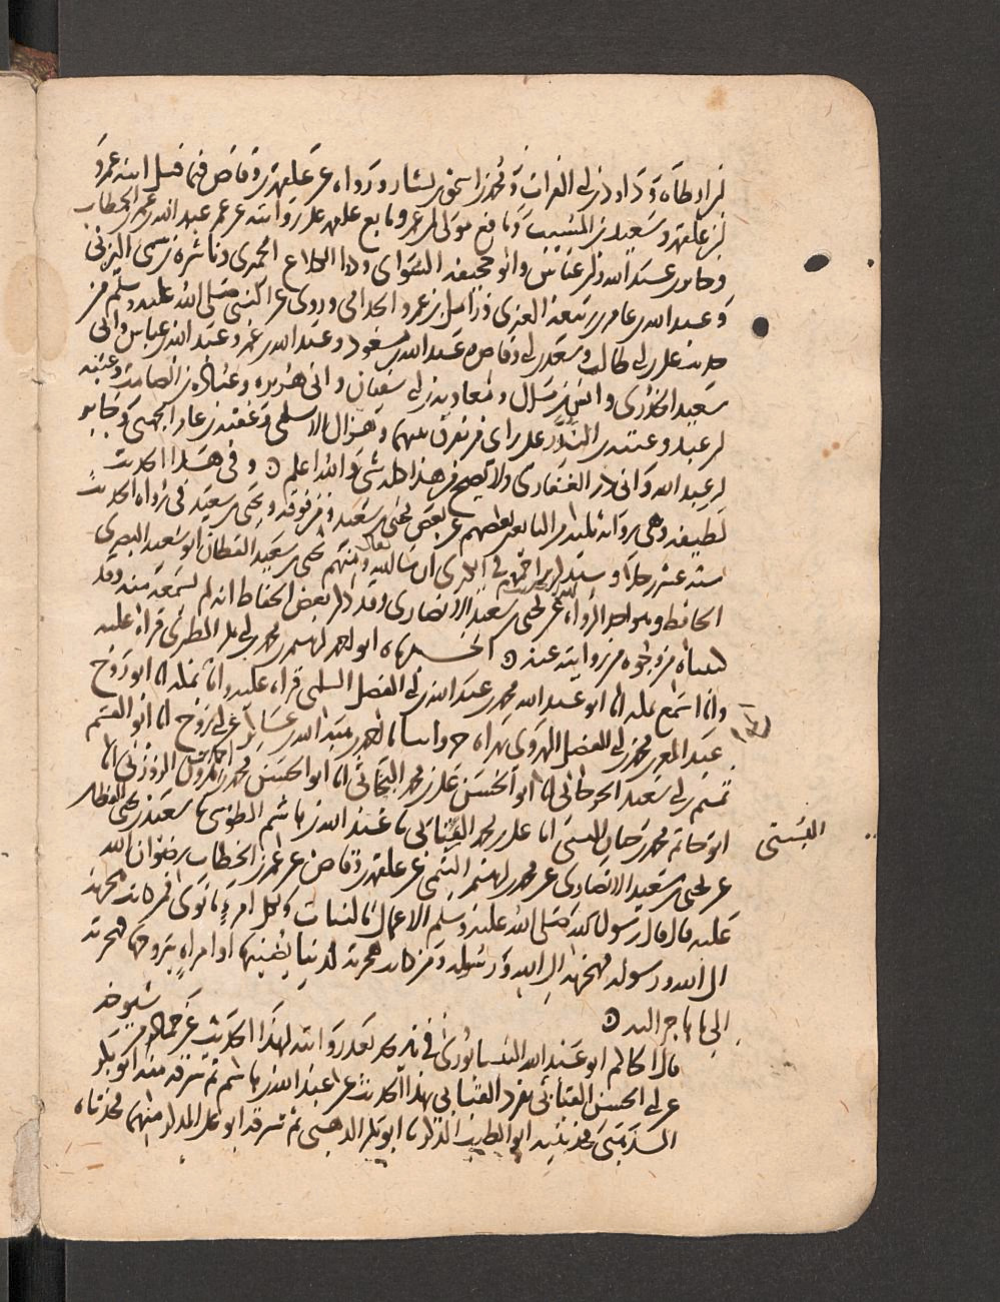 بن ارطاه وداود بن ابي الفرات ومحمد بن اسحق بن يسار ورواه عن علقمة بن وقاص فيما قيل ابنه عمرو
بن علقمة وسعيد بن المسيب ونافع مولى ابن عمر وتابع علقمة على روايته عن عمر عبد الله بن عمر بن الخطاب
وجابر بن عبد الله وابو جحيفة السوائي وذا الكلاع الحميري وناشرة بن سمي اليزني
وعبد الله بن عامر بن ربيعة العنزي وزامل بن عمرو الجذامي وروي عن النبي صلى الله عليه وسلم من
حديث علي بن ابي طالب وسعد بن ابي وقاص وعبد الله بن مسعود وعبد الله بن عمر وعبد الله بن عباس وابي
سعيد الخدري وانس بن مالك ومعاوية بن ابي سفيان وابي هريرة وعبادة بن الصامت وعتبة
بن عبد وعتبة بن الندر على راي من يفرق بينهما وهزال الاسلمي وعقبة بن عامر الجهني وجابر
بن عبد الله وابي ذر الغفاري ولا يصح من هذا كله شي والله اعلم وفي هذا الحديث
لطيفة وهي رواية ثلثة من التابعين بعضهم عن بعض يحيى بن سعيد ومن فوقه ويحيى بن سعيد في رواه الحديث
ستة عشر رجلا وسيذكر ان شا الله تعالى ومنهم يحيى بن سعيد القطان ابو سعيد البصري
الحافظ وهو احد الرواه عن يحيى بن سعيد الانصاري وقد ذكر بعض الحفاظ انه لم يسمعه منه وقد
كتبناه من وجوه من روايته عنه اخبرناه ابو احمد بن محمد بن ابي بكر الطبري قراة عليه
وانا اسمع بمكة انا ابو عبد الله محمد بن عبد الله بن ابي الفضل السلمي قراة عليه وانا بمكة انا ابو روح
عبد المعز بن محمد بن ابي الفضل الهروي بهراه ح وانبانا احمد بن هبة الله بن عساكر عن ابي روح انا ابو القسم
تميم بن ابي سعيد الجرجاني انا ابو الحسن علي بن محمد البحاثي انا ابو الحسن محمد بن احمد بن هرون الزوزني انا
ابو حاتم محمد بن حبان البستي انا علي بن محمد القباني نا عبد الله بن هاشم الطوسي نا سعيد بن يحيى القطان
البستي
عن يحيى بن سعيد الانصاري عن محمد بن ابراهيم التيمي عن علقمة بن وقاص عن عمر بن الخطاب رضوان الله
عليه قال قال رسول الله صلى الله عليه وسلم الاعمال بالنيات ولكل امرئ ما نوى فمن كانت هجرته
الى الله ورسوله فهجرته الى الله ورسوله ومن كانت هجرته لدنيا يصيبها او امراة يتزوجها فهجرته
الى ما هاجر اليه
قال الحاكم ابو عبد الله النيسابوري في تاريخه بعد روايته لهذا الحديث عن جماعة من شيوخه
عن ابي الحسن القباني تفرد القباني بهذا الحديث عن عبد الله بن هاشم ثم سرقه منه ابو بكر
ابو الطيب الذكر نا ابو بكر الذهبي ثم سرقه ابو علي المذكر منهما فحدثناه